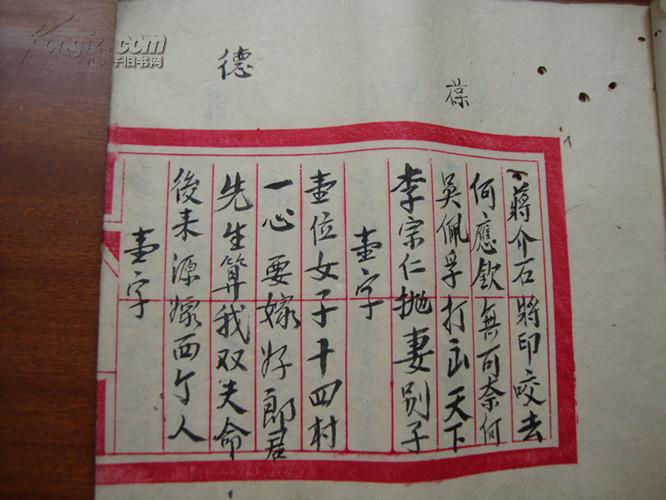 葆
蔣介石將印咬去
何應欽無可奈何
吳佩孚打出天下
李宗仁抛妻别子
壹字
德
壹位女子十四村
一心要嫁好郎君
先生算我双夫命
後来源嫁西个人
壹字
子旧书网